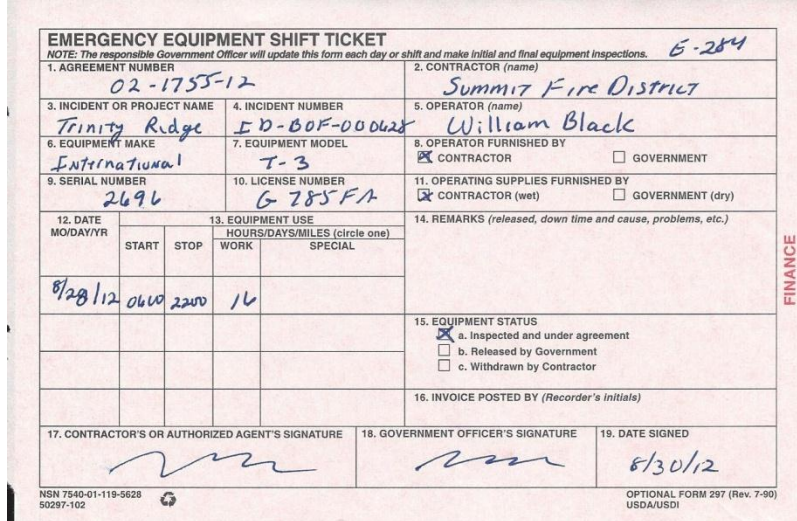 EMERGENCY EQUIPMENT SHIFT TICKET
E-284
NOTE: The responsible Government Officer will update this form each day or shift and make initial and final equipment inspections.
1. AGREEMENT NUMBER
02-1755-12
2. CONTRACTOR (name)
Summit Fire District
3. INCIDENT OR PROJECT NAME
Trinity Ridge
4. INCIDENT NUMBER
ID-BOF-000628
5. OPERATOR (name)
William Black
6. EQUIPMENT MAKE
International
7. EQUIPMENT MODEL
T-3
8. OPERATOR FURNISHED BY
CONTRACTOR GOVERNMENT
9. SERIAL NUMBER
2696
10. LICENSE NUMBER
G 785FA
11. OPERATING SUPPLIES FURNISHED BY
CONTRACTOR (wet) GOVERNMENT (dry)
12. DATE
MO/DAY/YR
13. EQUIPMENT USE
HOURS/DAYS/MILES (circle one)
START STOP WORK SPECIAL
8/28/12 0600 2200 16
14. REMARKS (released, down time and cause, problems, etc.)
15. EQUIPMENT STATUS
a. Inspected and under agreement
b. Released by Government
c. Withdrawn by Contractor
16. INVOICE POSTED BY (Recorder's initials)
17. CONTRACTOR'S OR AUTHORIZED AGENT'S SIGNATURE
18. GOVERNMENT OFFICER'S SIGNATURE
19. DATE SIGNED
8/30/12
NSN 7540-01-119-5628
50297-102
OPTIONAL FORM 297 (Rev. 7-90)
USDA/USDI
FINANCE